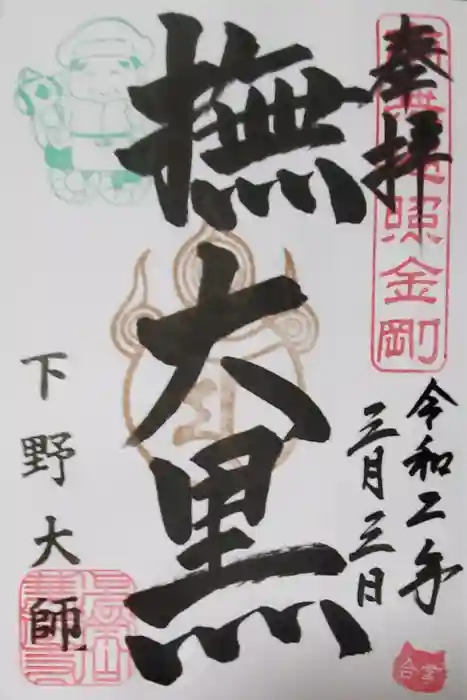 奉拝
照金剛
令和二年
三月三日
撫大黒
下野大師